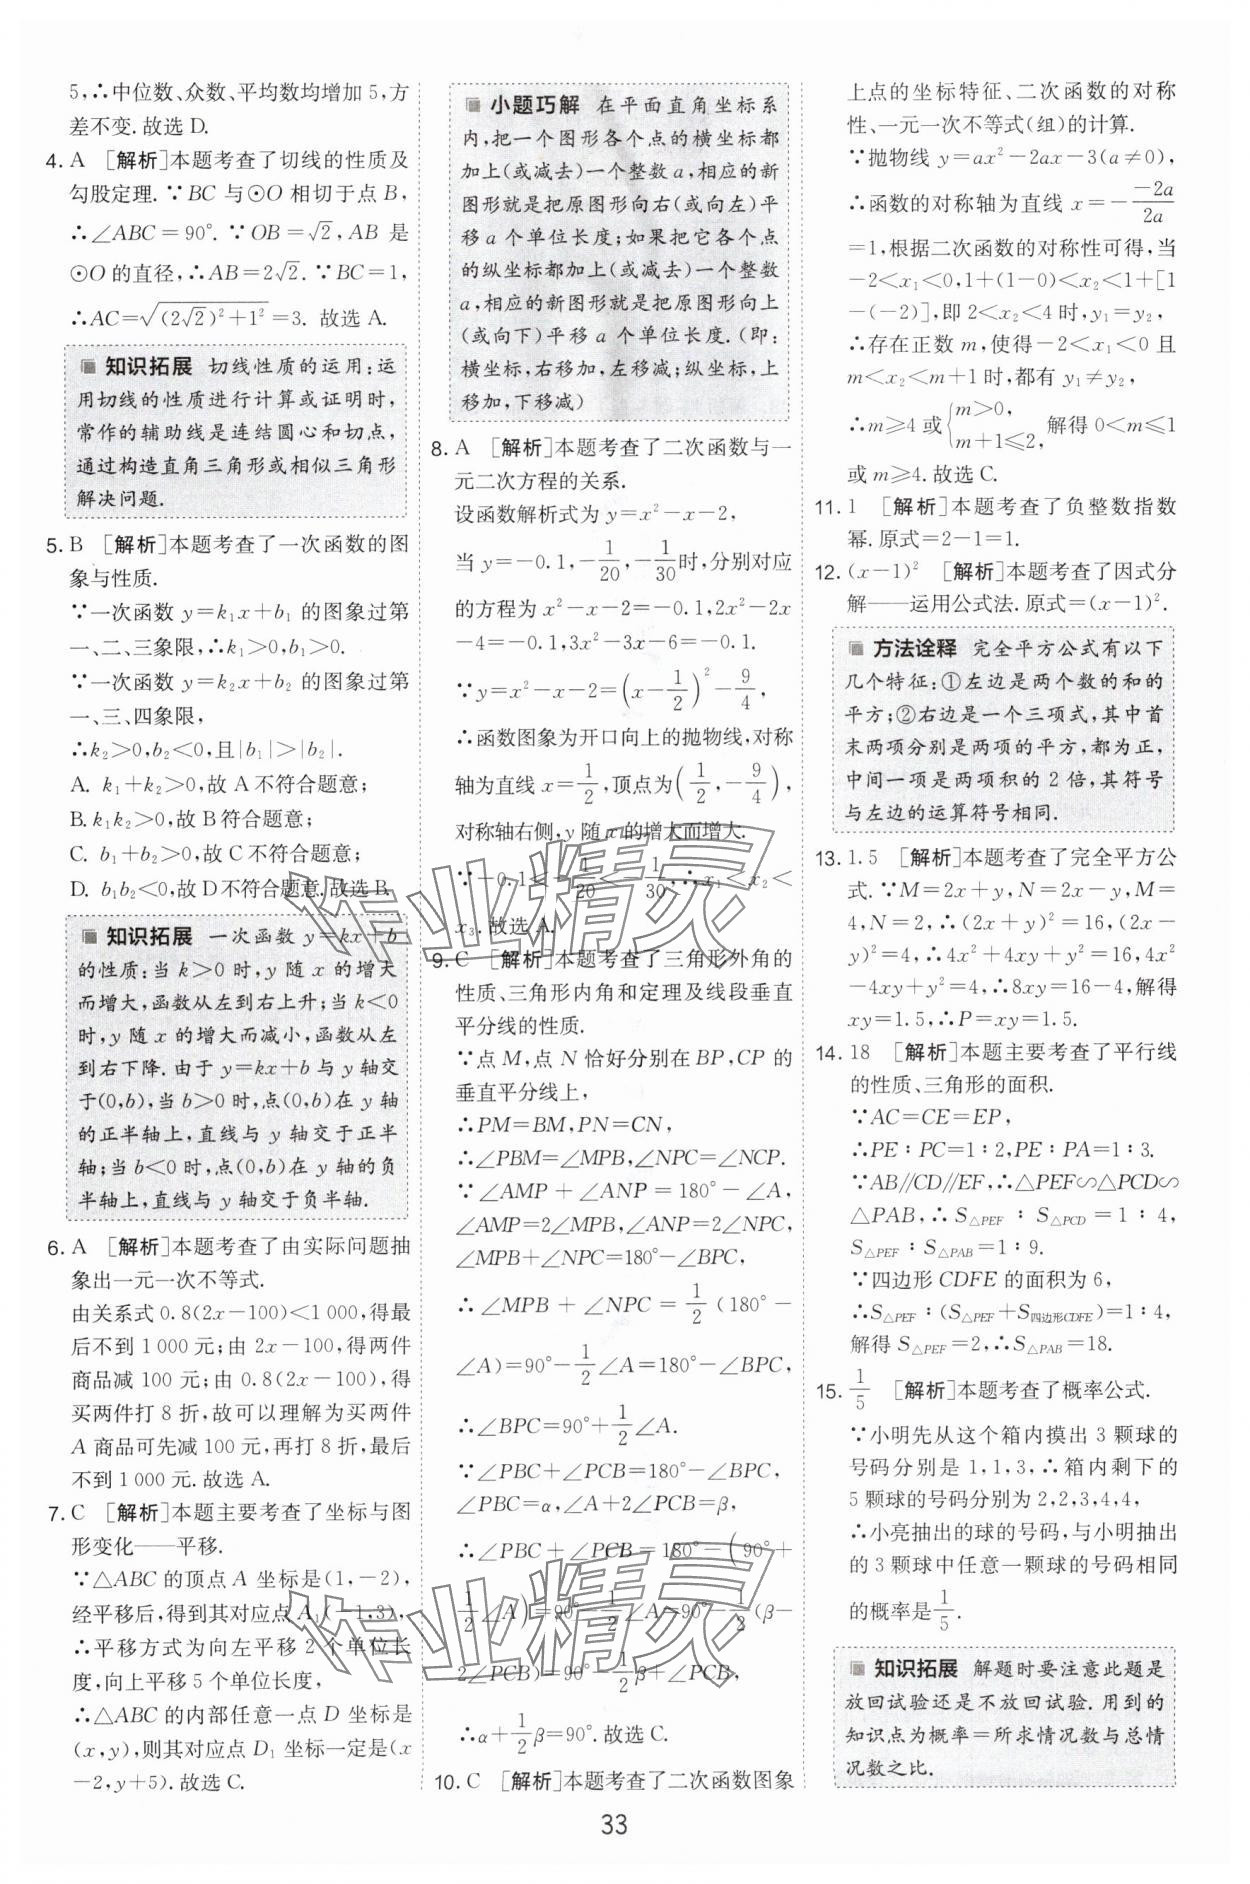 5,∴中位数、众数、平均数均增加5,方
差不变.故选D.
4. A [解析]本题考查了切线的性质及
勾股定理.∵BC与⊙O相切于点B,
∴∠ABC=90°.∵OB=√2,AB是
⊙O的直径,∴AB=2√2.∵BC=1,
∴AC=√((2√2)²+1²)=3. 故选A.
知识拓展 切线性质的运用:运
用切线的性质进行计算或证明时,
常作的辅助线是连结圆心和切点,
通过构造直角三角形或相似三角形
解决问题.
5. B [解析]本题考查了一次函数的图
象与性质.
∵一次函数y=k₁x+b₁的图象过第
一、二、三象限,∴k₁>0,b₁>0.
∵一次函数y=k₂x+b₂的图象过第
一、三、四象限,
∴k₂>0,b₂<0,且|b₁|>|b₂|.
A. k₁+k₂>0,故A不符合题意;
B. k₁k₂>0,故B符合题意;
C. b₁+b₂>0,故C不符合题意;
D. b₁b₂<0,故D不符合题意.故选B.
知识拓展 一次函数y=kx+b
的性质:当k>0时,y随x的增大
而增大,函数从左到右上升;当k<0
时,y随x的增大而减小,函数从左
到右下降.由于y=kx+b与y轴交
于(0,b),当b>0时,点(0,b)在y轴
的正半轴上,直线与y轴交于正半
轴;当b<0时,点(0,b)在y轴的负
半轴上,直线与y轴交于负半轴.
6. A [解析]本题考查了由实际问题抽
象出一元一次不等式.
由关系式0.8(2x-100)<1 000,得最
后不到1 000元;由2x-100,得两件
商品减100元;由0.8(2x-100),得
买两件打8折,故可以理解为买两件
A商品可先减100元,再打8折,最后
不到1 000元.故选A.
7. C [解析]本题主要考查了坐标与图
形变化——平移.
∵△ABC的顶点A坐标是(1,-2),
经平移后,得到其对应点A₁(-1,3),
∴平移方式为向左平移2个单位长
度,向上平移5个单位长度,
∴△ABC的内部任意一点D坐标是
(x,y),则其对应点D₁坐标一定是(x
-2,y+5).故选C.
小题巧解 在平面直角坐标系
内,把一个图形各个点的横坐标都
加上(或减去)一个整数a,相应的新
图形就是把原图形向右(或向左)平
移a个单位长度;如果把它各个点
的纵坐标都加上(或减去)一个整数
a,相应的新图形就是把原图形向上
(或向下)平移a个单位长度.(即:
横坐标,右移加,左移减;纵坐标,上
移加,下移减)
8. A [解析]本题考查了二次函数与一
元二次方程的关系.
设函数解析式为y=x²-x-2,
当y=-0.1,-1/20,-1/30时,分别对应
的方程为x²-x-2=-0.1,2x²-2x
-4=-0.1,3x²-3x-6=-0.1.
∵y=x²-x-2=(x-1/2)²-9/4,
∴函数图象为开口向上的抛物线,对称
轴为直线x=1/2,顶点为(1/2,-9/4),
对称轴右侧,y随x的增大而增大.
∵-0.1<-1/20<-1/30,∴x₁<x₂<
x₃.故选A.
9. C [解析]本题考查了三角形外角的
性质、三角形内角和定理及线段垂直
平分线的性质.
∵点M,点N恰好分别在BP,CP的
垂直平分线上,
∴PM=BM,PN=CN,
∴∠PBM=∠MPB,∠NPC=∠NCP.
∵∠AMP+∠ANP=180°-∠A,
∠AMP=2∠MPB,∠ANP=2∠NPC,
∠MPB+∠NPC=180°-∠BPC,
∴∠MPB+∠NPC=1/2(180°-
∠A)=90°-1/2∠A=180°-∠BPC,
∴∠BPC=90°+1/2∠A.
∵∠PBC+∠PCB=180°-∠BPC,
∠PBC=α,∠A+2∠PCB=β,
∴∠PBC+∠PCB=180°-(90°+
1/2∠A)=90°-1/2∠A=90°-1/2(β-
2∠PCB)=90°-1/2β+∠PCB,
∴α+1/2β=90°.故选C.
10. C [解析]本题考查了二次函数图象
上点的坐标特征、二次函数的对称
性、一元一次不等式(组)的计算.
∵抛物线y=ax²-2ax-3(a≠0),
∴函数的对称轴为直线x=-(-2a)/2a
=1,根据二次函数的对称性可得,当
-2<x₁<0,1+(1-0)<x₂<1+[1
-(-2)],即2<x₂<4时,y₁=y₂,
∴存在正数m,使得-2<x₁<0且
m<x₂<m+1时,都有y₁≠y₂,
∴m≥4或{m>0, m+1≤2, 解得0<m≤1
或m≥4.故选C.
11. 1 [解析]本题考查了负整数指数
幂.原式=2-1=1.
12. (x-1)² [解析]本题考查了因式分
解——运用公式法.原式=(x-1)².
方法诠释 完全平方公式有以下
几个特征:①左边是两个数的和的
平方;②右边是一个三项式,其中首
末两项分别是两项的平方,都为正,
中间一项是两项积的2倍,其符号
与左边的运算符号相同.
13. 1.5 [解析]本题考查了完全平方公
式.∵M=2x+y,N=2x-y,M=
4,N=2,∴(2x+y)²=16,(2x-
y)²=4,∴4x²+4xy+y²=16,4x²
-4xy+y²=4,∴8xy=16-4,解得
xy=1.5,∴P=xy=1.5.
14. 18 [解析]本题主要考查了平行线
的性质、三角形的面积.
∵AC=CE=EP,
∴PE∶PC=1∶2,PE∶PA=1∶3.
∵AB∥CD∥EF,∴△PEF∽△PCD∽
△PAB,∴S△PEF∶S△PCD=1∶4,
S△PEF∶S△PAB=1∶9.
∵四边形CDFE的面积为6,
∴S△PEF∶(S△PEF+S四边形CDFE)=1∶4,
解得S△PEF=2,∴S△PAB=18.
15. 1/5 [解析]本题考查了概率公式.
∵小明先从这个箱内摸出3颗球的
号码分别是1,1,3,∴箱内剩下的
5颗球的号码分别为2,2,3,4,4,
∴小亮抽出的球的号码,与小明抽出
的3颗球中任意一颗球的号码相同
的概率是1/5.
知识拓展 解题时要注意此题是
放回试验还是不放回试验.用到的
知识点为概率=所求情况数与总情
况数之比.
33
作业精灵
作业精灵